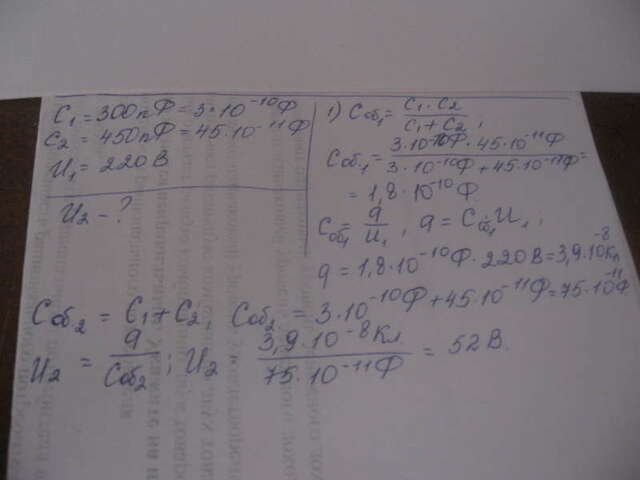 C₁ = 300пФ = 3·10⁻¹⁰Ф
C₂ = 450пФ = 45·10⁻¹¹Ф
U₁ = 220В
U₂ - ?
1) Cоб₁ = C₁·C₂ / C₁+C₂ ;
Cоб₁ = 3·10⁻¹⁰Ф·45·10⁻¹¹Ф / 3·10⁻¹⁰Ф+45·10⁻¹¹Ф =
= 1,8·10⁻¹⁰Ф
Cоб₁ = q / U₁ , q = Cоб₁·U₁ ;
q = 1,8·10⁻¹⁰Ф·220В = 3,9·10⁻⁸Кл
Cоб₂ = C₁ + C₂ Cоб₂ = 3·10⁻¹⁰Ф + 45·10⁻¹¹Ф = 75·10⁻¹¹Ф
U₂ = q / Cоб₂ ; U₂ 3,9·10⁻⁸Кл / 75·10⁻¹¹Ф = 52В.